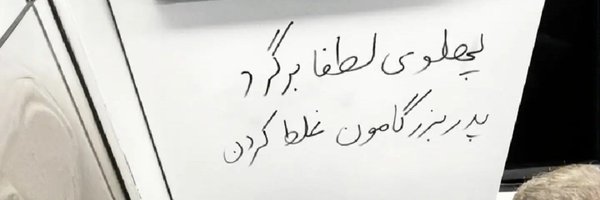 پهلوی لطفا برگرد
پدر بزرگامون غلط کردن